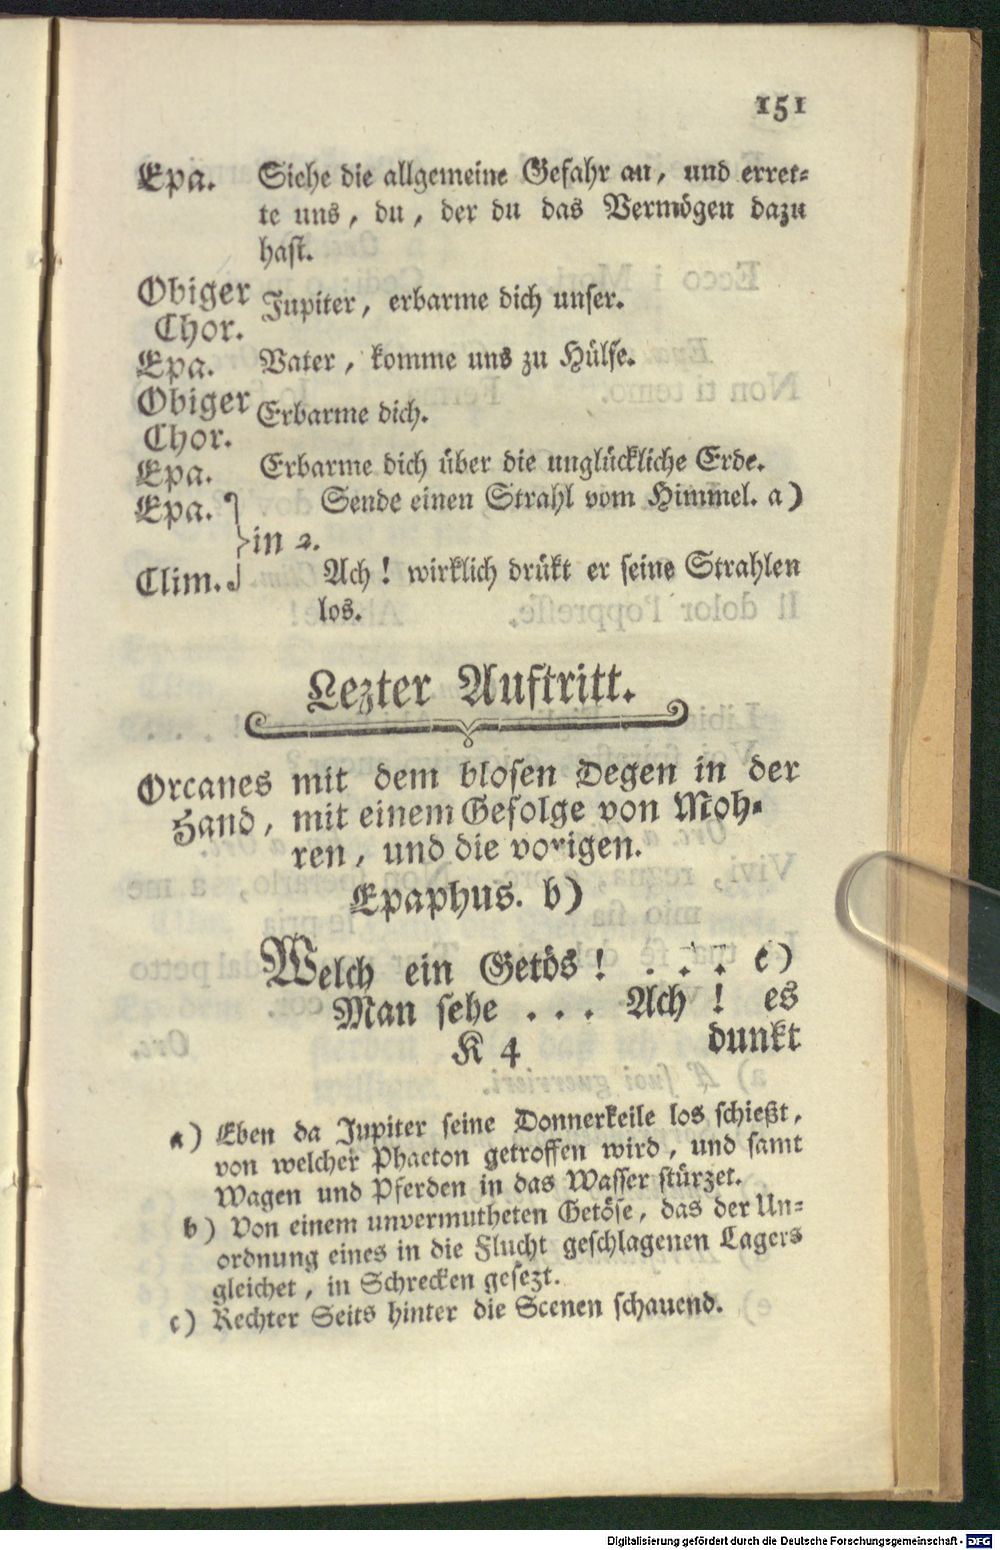 151
Epa. Siehe die allgemeine Gefahr an, und erret-
te uns, du, der du das Vermögen dazu
hast.
Obiger Chor. Jupiter, erbarme dich unser.
Epa. Vater, komme uns zu Hülfe.
Obiger Chor. Erbarme dich.
Epa. Erbarme dich über die unglückliche Erde.
Epa. Sende einen Strahl vom Himmel. a)
in 2.
Clim. Ach! wirklich drükt er seine Strahlen
los.
Lezter Auftritt.
Orcanes mit dem blosen Degen in der
Hand, mit einem Gefolge von Moh-
ren, und die vorigen.
Epaphus. b)
Welch ein Getös! . . . c)
Man sehe . . . Ach! es
K 4 dunkt
a) Eben da Jupiter seine Donnerkeile los schießt,
von welcher Phaeton getroffen wird, und samt
Wagen und Pferden in das Wasser stürzet.
b) Von einem unvermutheten Getöse, das der Un-
ordnung eines in die Flucht geschlagenen Lagers
gleichet, in Schrecken gesezt.
c) Rechter Seits hinter die Scenen schauend.
Digitalisierung gefördert durch die Deutsche Forschungsgemeinschaft - DFG